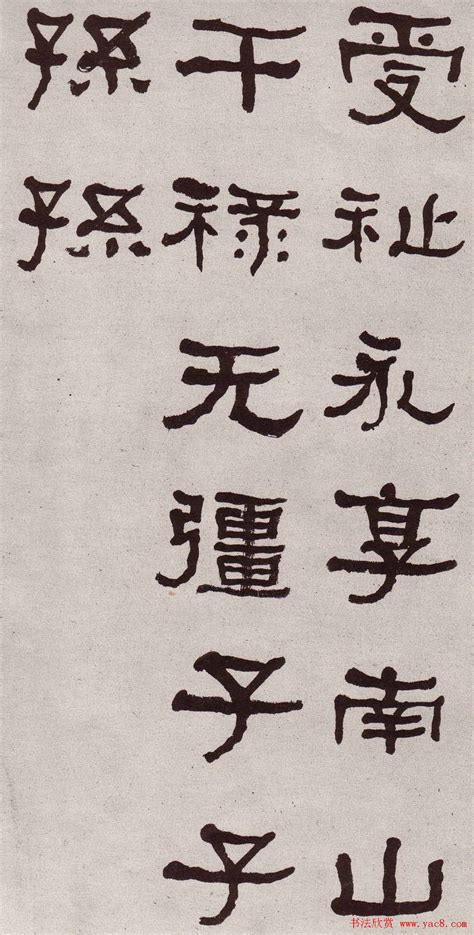 受祉永享南山
干禄无彊子子
孫孫
书法欣赏 www.yac8.com